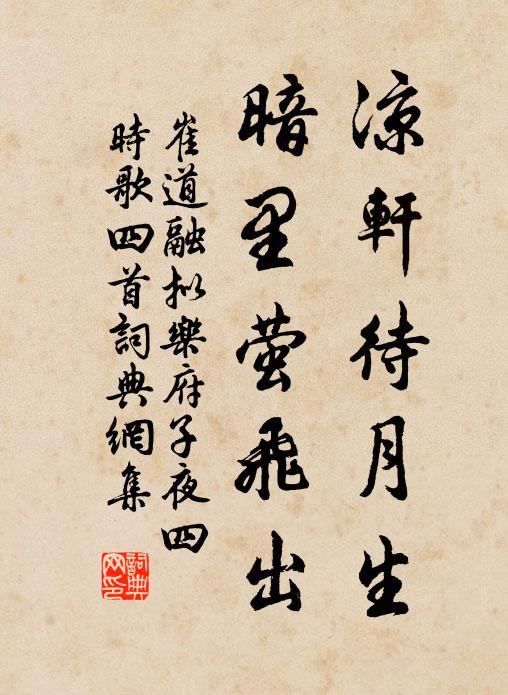 涼軒待月生
暗里萤飛出
崔道融拟樂府子夜四
時歌四首詞典網集
詞典
网印